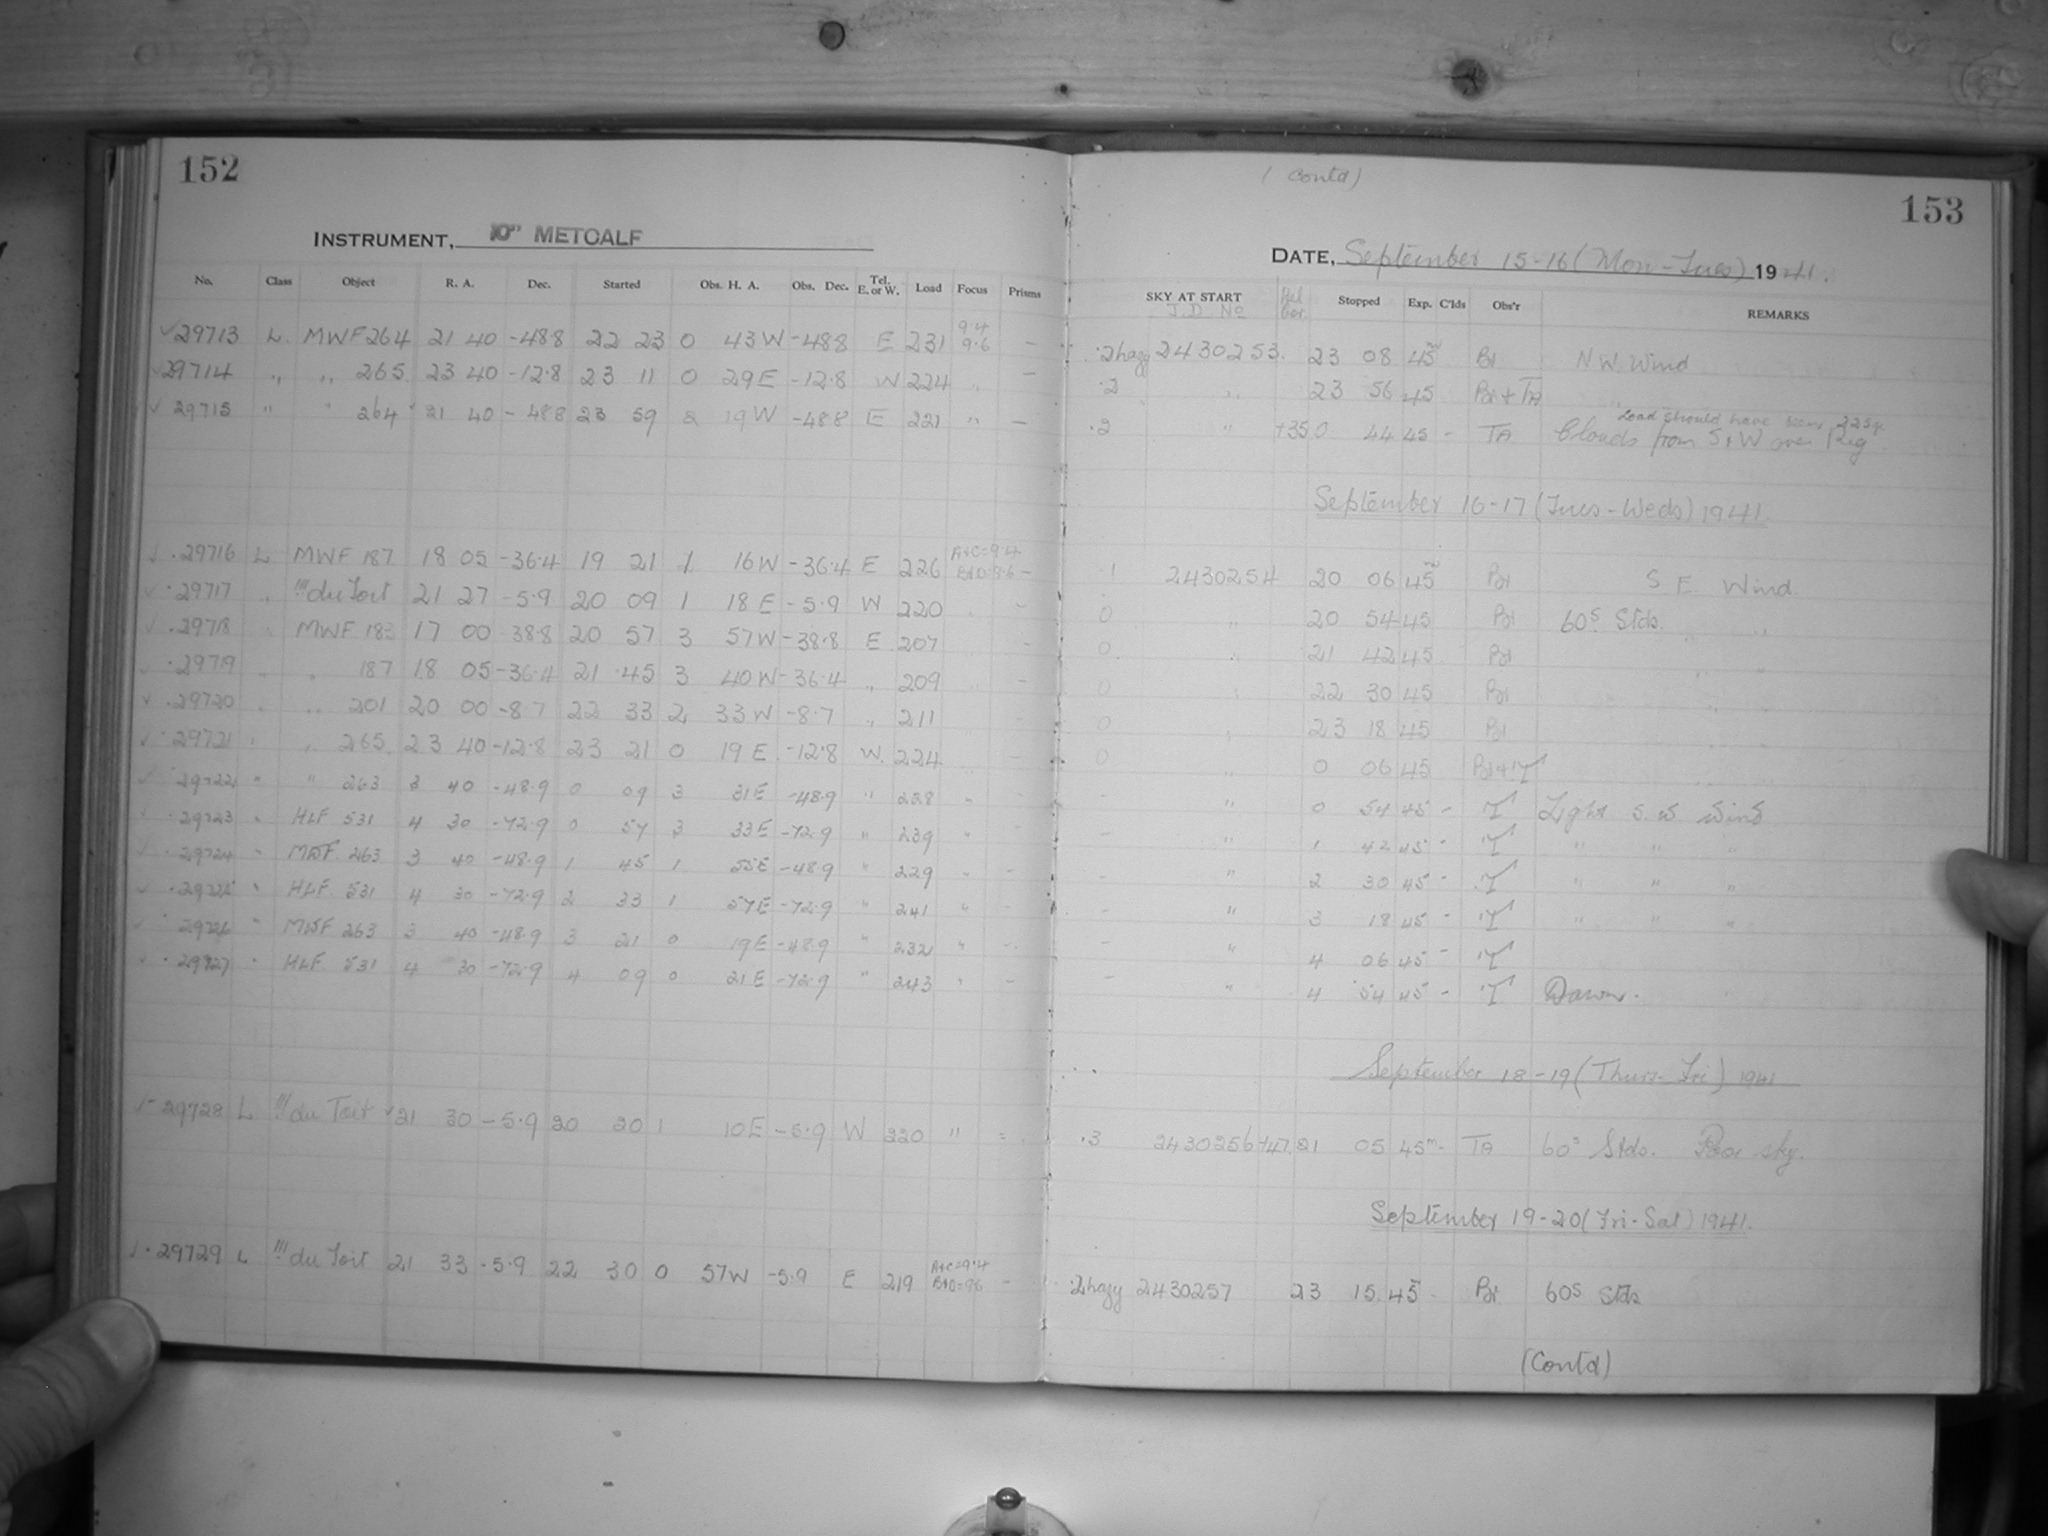 152
INSTRUMENT, 10" METCALF
No. Class Object R. A. Dec. Started Obs. H. A. Obs. Dec. Tel. E. or W. Load Focus Prisms
29713 L. MWF 264 21 40 -48.8 22 23 0 43 W -48.8 E 231 9.4 9.6 -
29714 " " 265 23 40 -12.8 23 11 0 29 E -12.8 W 224 " -
29715 " " 264 21 40 -48.8 23 59 2 19 W -48.8 E 221 " -
29716 L MWF 187 18 05 -36.4 19 21 1 16 W -36.4 E 226 A+C=9.4 B+D=9.6 -
29717 " !!! du Toit 21 27 -5.9 20 09 1 18 E -5.9 W 220 -
29718 " MWF 183 17 00 -38.8 20 57 3 57 W -38.8 E 207 -
29719 " " 187 18 05 -36.4 21 45 3 40 W -36.4 " 209 -
29720 " " 201 20 00 -8.7 22 33 2 33 W -8.7 " 211 -
29721 " " 265 23 40 -12.8 23 21 0 19 E -12.8 W 224 -
29722 " " 263 3 40 -48.9 0 09 3 31 E -48.9 " 228 " -
29723 " HLF 531 4 30 -72.9 0 57 3 33 E -72.9 " 239 " -
29724 " MWF 263 3 40 -48.9 1 45 1 55 E -48.9 " 229 " -
29725 " HLF 531 4 30 -72.9 2 33 1 57 E -72.9 " 241 " -
29726 " MWF 263 3 40 -48.9 3 21 0 19 E -48.9 " 232 " -
29727 " HLF 531 4 30 -72.9 4 09 0 21 E -72.9 " 243 " -
29728 L !!! du Toit 21 30 -5.9 20 20 1 10 E -5.9 W 220 " =
29729 L !!! du Toit 21 33 -5.9 22 30 0 57 W -5.9 E 219 A+C=9.4 B+D=9.6 -
(Contd)
153
DATE, September 15-16 (Mon-Tues) 1941.
SKY AT START J.D. No Stopped Exp. C'lds Obs'r REMARKS
.2 hazy 2430253. 23 08 45m Bl N.W. Wind
.2 " 23 56 45 Bl + TA
Load should have been 225
.2 " +35 0 44 45 - TA Clouds from S+W over Reg
September 16-17 (Tues-Weds) 1941.
.1 2430254 20 06 45m Bl S. E. Wind
0 " 20 54 45 Bl 60s Stds. " "
0 " 21 42 45 Bl " "
0 " 22 30 45 Bl " "
0 " 23 18 45 Bl
0 " 0 06 45 Bl + T
- " 0 54 45 - T Light S. W. Wind
- " 1 42 45 - T " " "
- " 2 30 45 - T " " "
- " 3 18 45 - T " " "
- " 4 06 45 - T
- " 4 54 45 - T Dawn.
September 18-19 (Thurs-Fri) 1941
.3 2430256 +47 21 05 45m - TA 60s Stds. Poor sky.
September 19-20 (Fri-Sat) 1941.
.2 hazy 2430257 23 15 45 - Bl 60s Stds
(Contd)